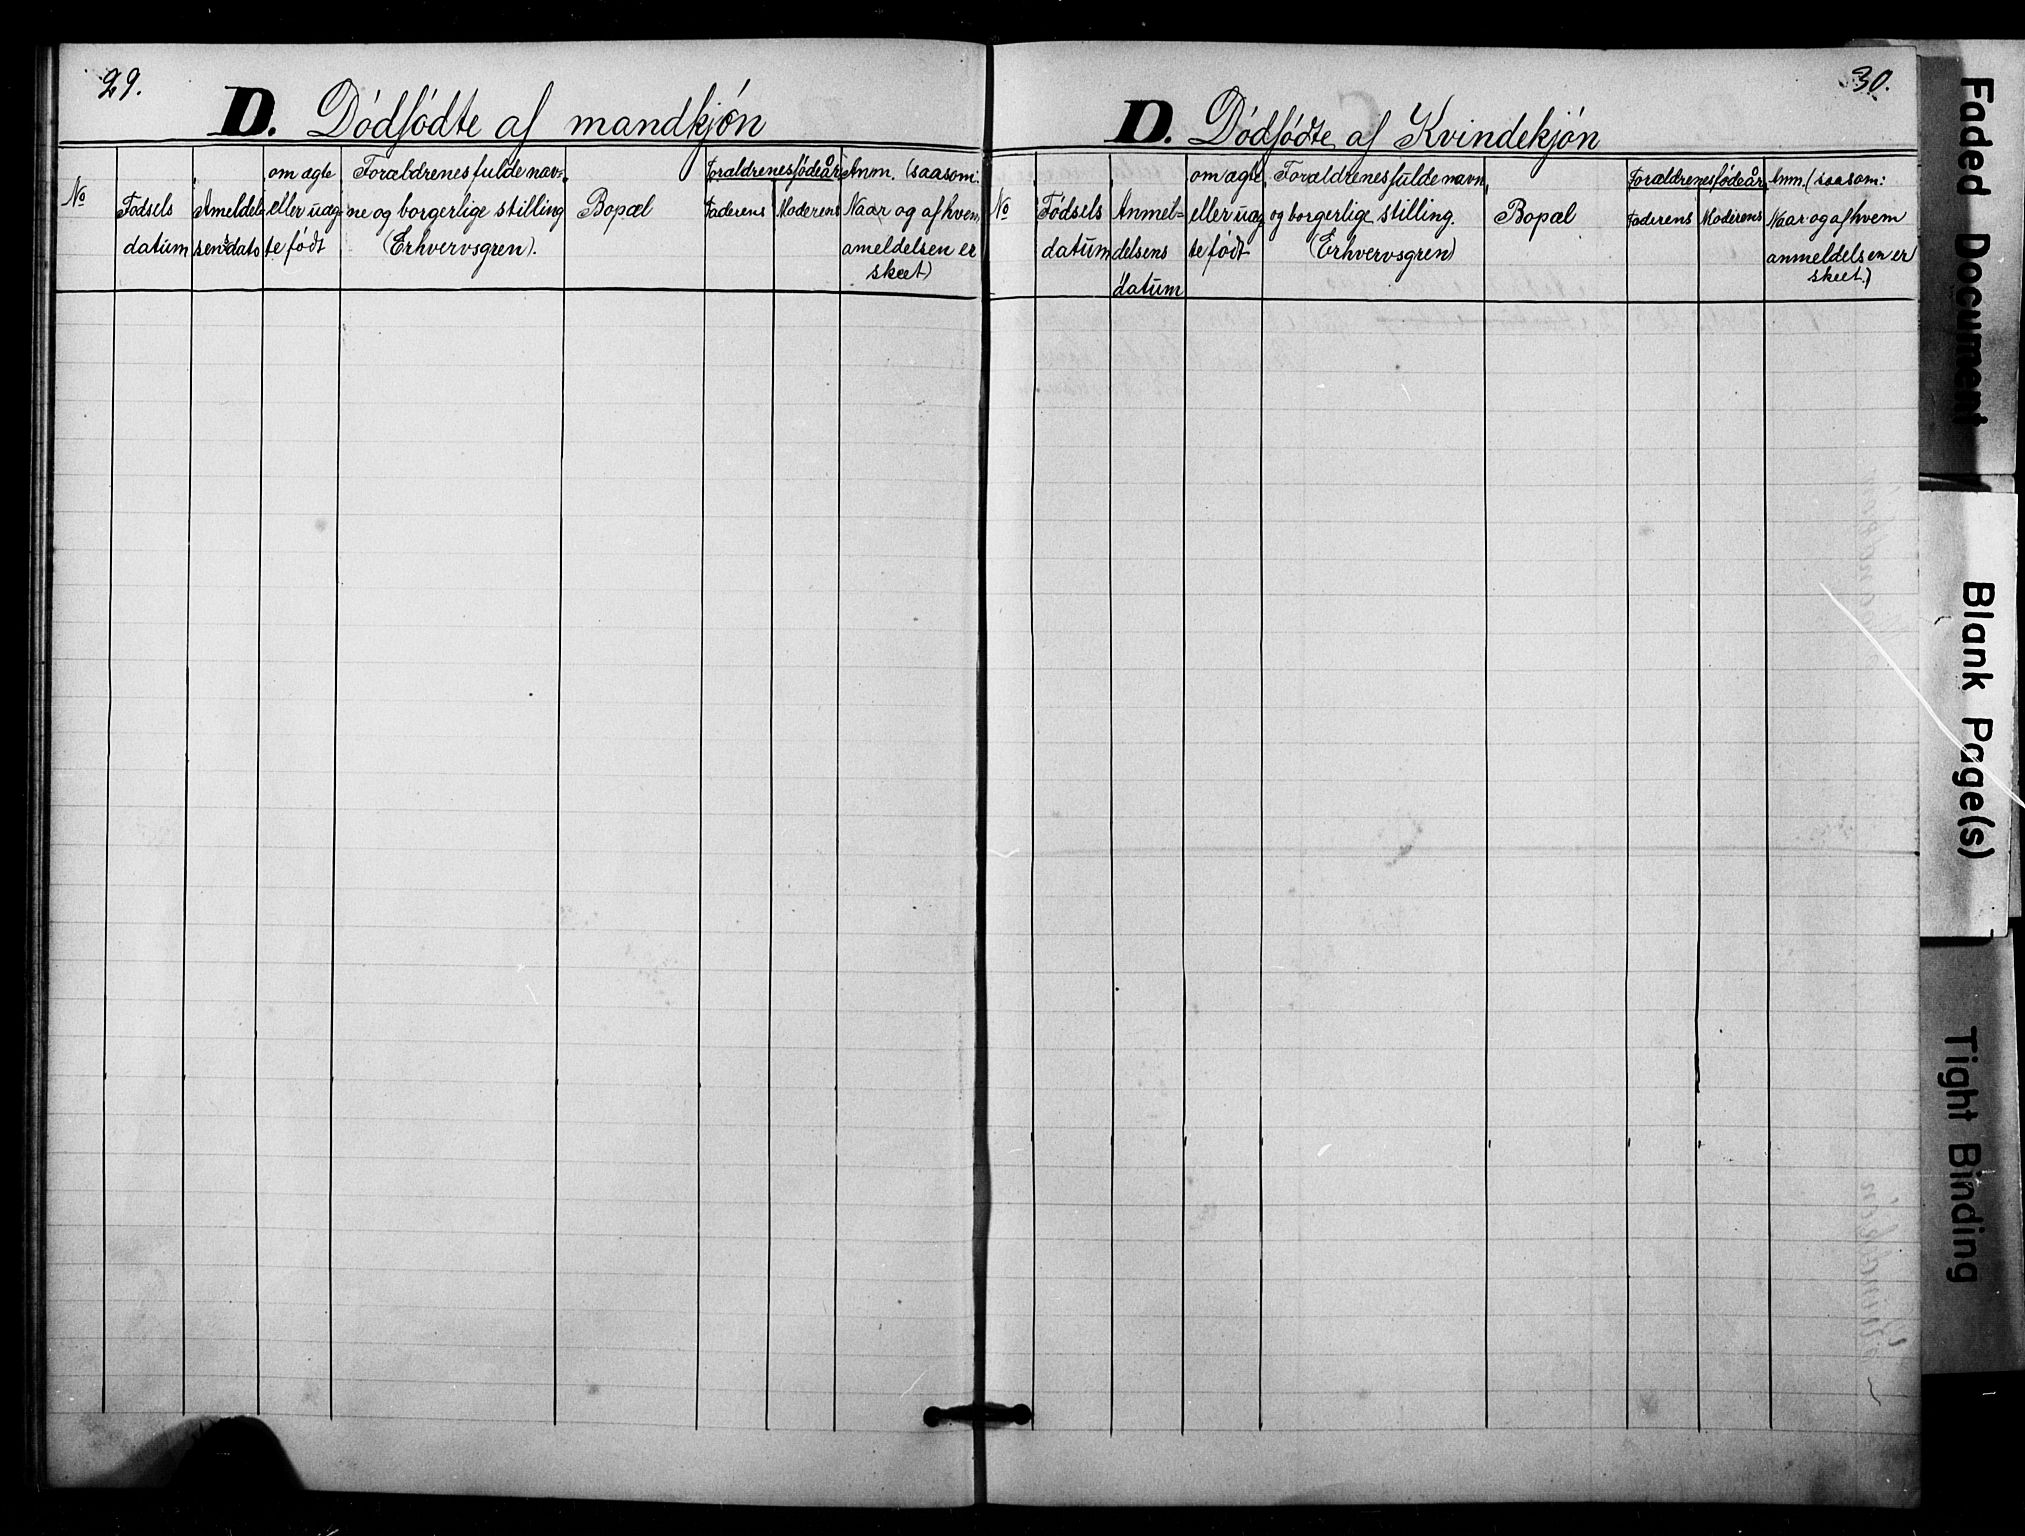 29.
D. Dódfódte af mandkjón
No
Fodsels
datum
Ameldel-
sensdato
om ægte
eller uæg
te født
Forældrenes fulde nav=
ne og borgerlige stilling
(Erhvervsgren).
Bopæl
Forældrenes fødeår
Faderens
Moderens
Anm. (saasom:
Naar og af hvem
ameldelsen er
skeet)
30.
D. Dódfódte af Kvindekjón
No
Fódsels
datum
Anmel=
delsens
datum
om ægte
eller uæg
te født
Forældrenes fulde navn
og borgerlige stilling.
(Erhvervsgren)
Bopæl
Forældrenes fødeår
Faderens
Moderens
Anm. (saasom:
Naar og af hvem
anmeldelsen er
skeet.)
Faded Document
Blank Page(s)
Tight Binding